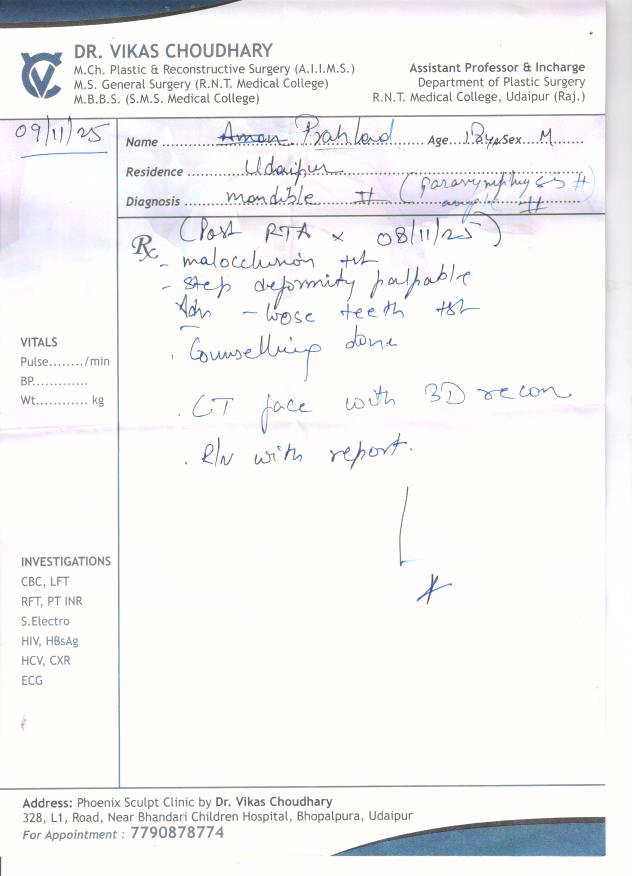 DR. VIKAS CHOUDHARY
M.Ch. Plastic & Reconstructive Surgery (A.I.I.M.S.)
M.S. General Surgery (R.N.T. Medical College)
M.B.B.S. (S.M.S. Medical College)
Assistant Professor & Incharge
Department of Plastic Surgery
R.N.T. Medical College, Udaipur (Raj.)
09/11/25
Name Aman Prahlad Age Sex M
Residence Udaipur
Diagnosis mandible # (parasymphysis #
angle #
Rx (Post RTA x 08/11/25)
- malocclusion +nt
- step deformity palpable
Adv - loose teeth +nt
. Counselling done
. CT face with 3D recon
. R/V with report.
VITALS
Pulse......../min
BP.............
Wt............ kg
INVESTIGATIONS
CBC, LFT
RFT, PT INR
S.Electro
HIV, HBsAg
HCV, CXR
ECG
Address: Phoenix Sculpt Clinic by Dr. Vikas Choudhary
328, L1, Road, Near Bhandari Children Hospital, Bhopalpura, Udaipur
For Appointment : 7790878774